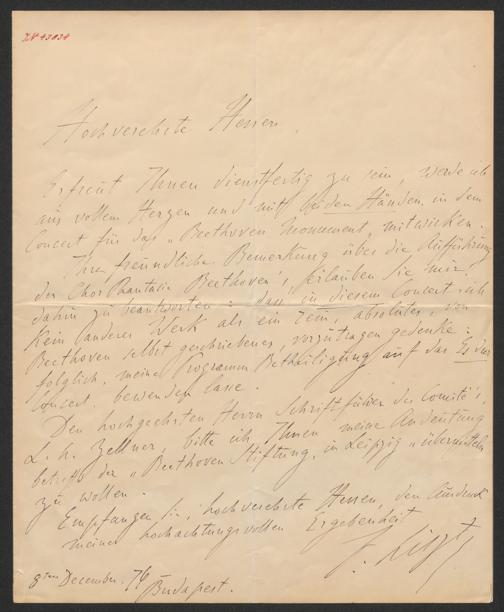 Hochverehrte Herren,
Erfreut Ihnen dienstfertig zu sein, werde ich
aus vollem Herzen und mit beiden Händen in dem
Concert für das „Beethoven Monument" mitwirken.
Ihre freundliche Bemerkung über die Aufführung
der Chor Phantasie Beethoven's, erlauben Sie mir
dahin zu beantworten: dass in diesem Concert ich
kein anderes Werk als ein rein, absolutes, von
Beethoven selbst geschriebenes vorzutragen gedenke:
folglich, meine Programm Betheiligung auf das Es dur
Concert bewenden lasse.
Den hochgeehrten Herrn Schriftführer des Comité's,
L. A. Zellner, bitte ich Ihnen meine Andeutung
betreffs der „Beethoven Stiftung, in Leipzig" übermitteln
zu wollen.
Empfangen Sie, hochverehrte Herren, den Ausdruck
meiner hochachtungsvollen Ergebenheit
F. Liszt
8ten December. 76
Budapest.